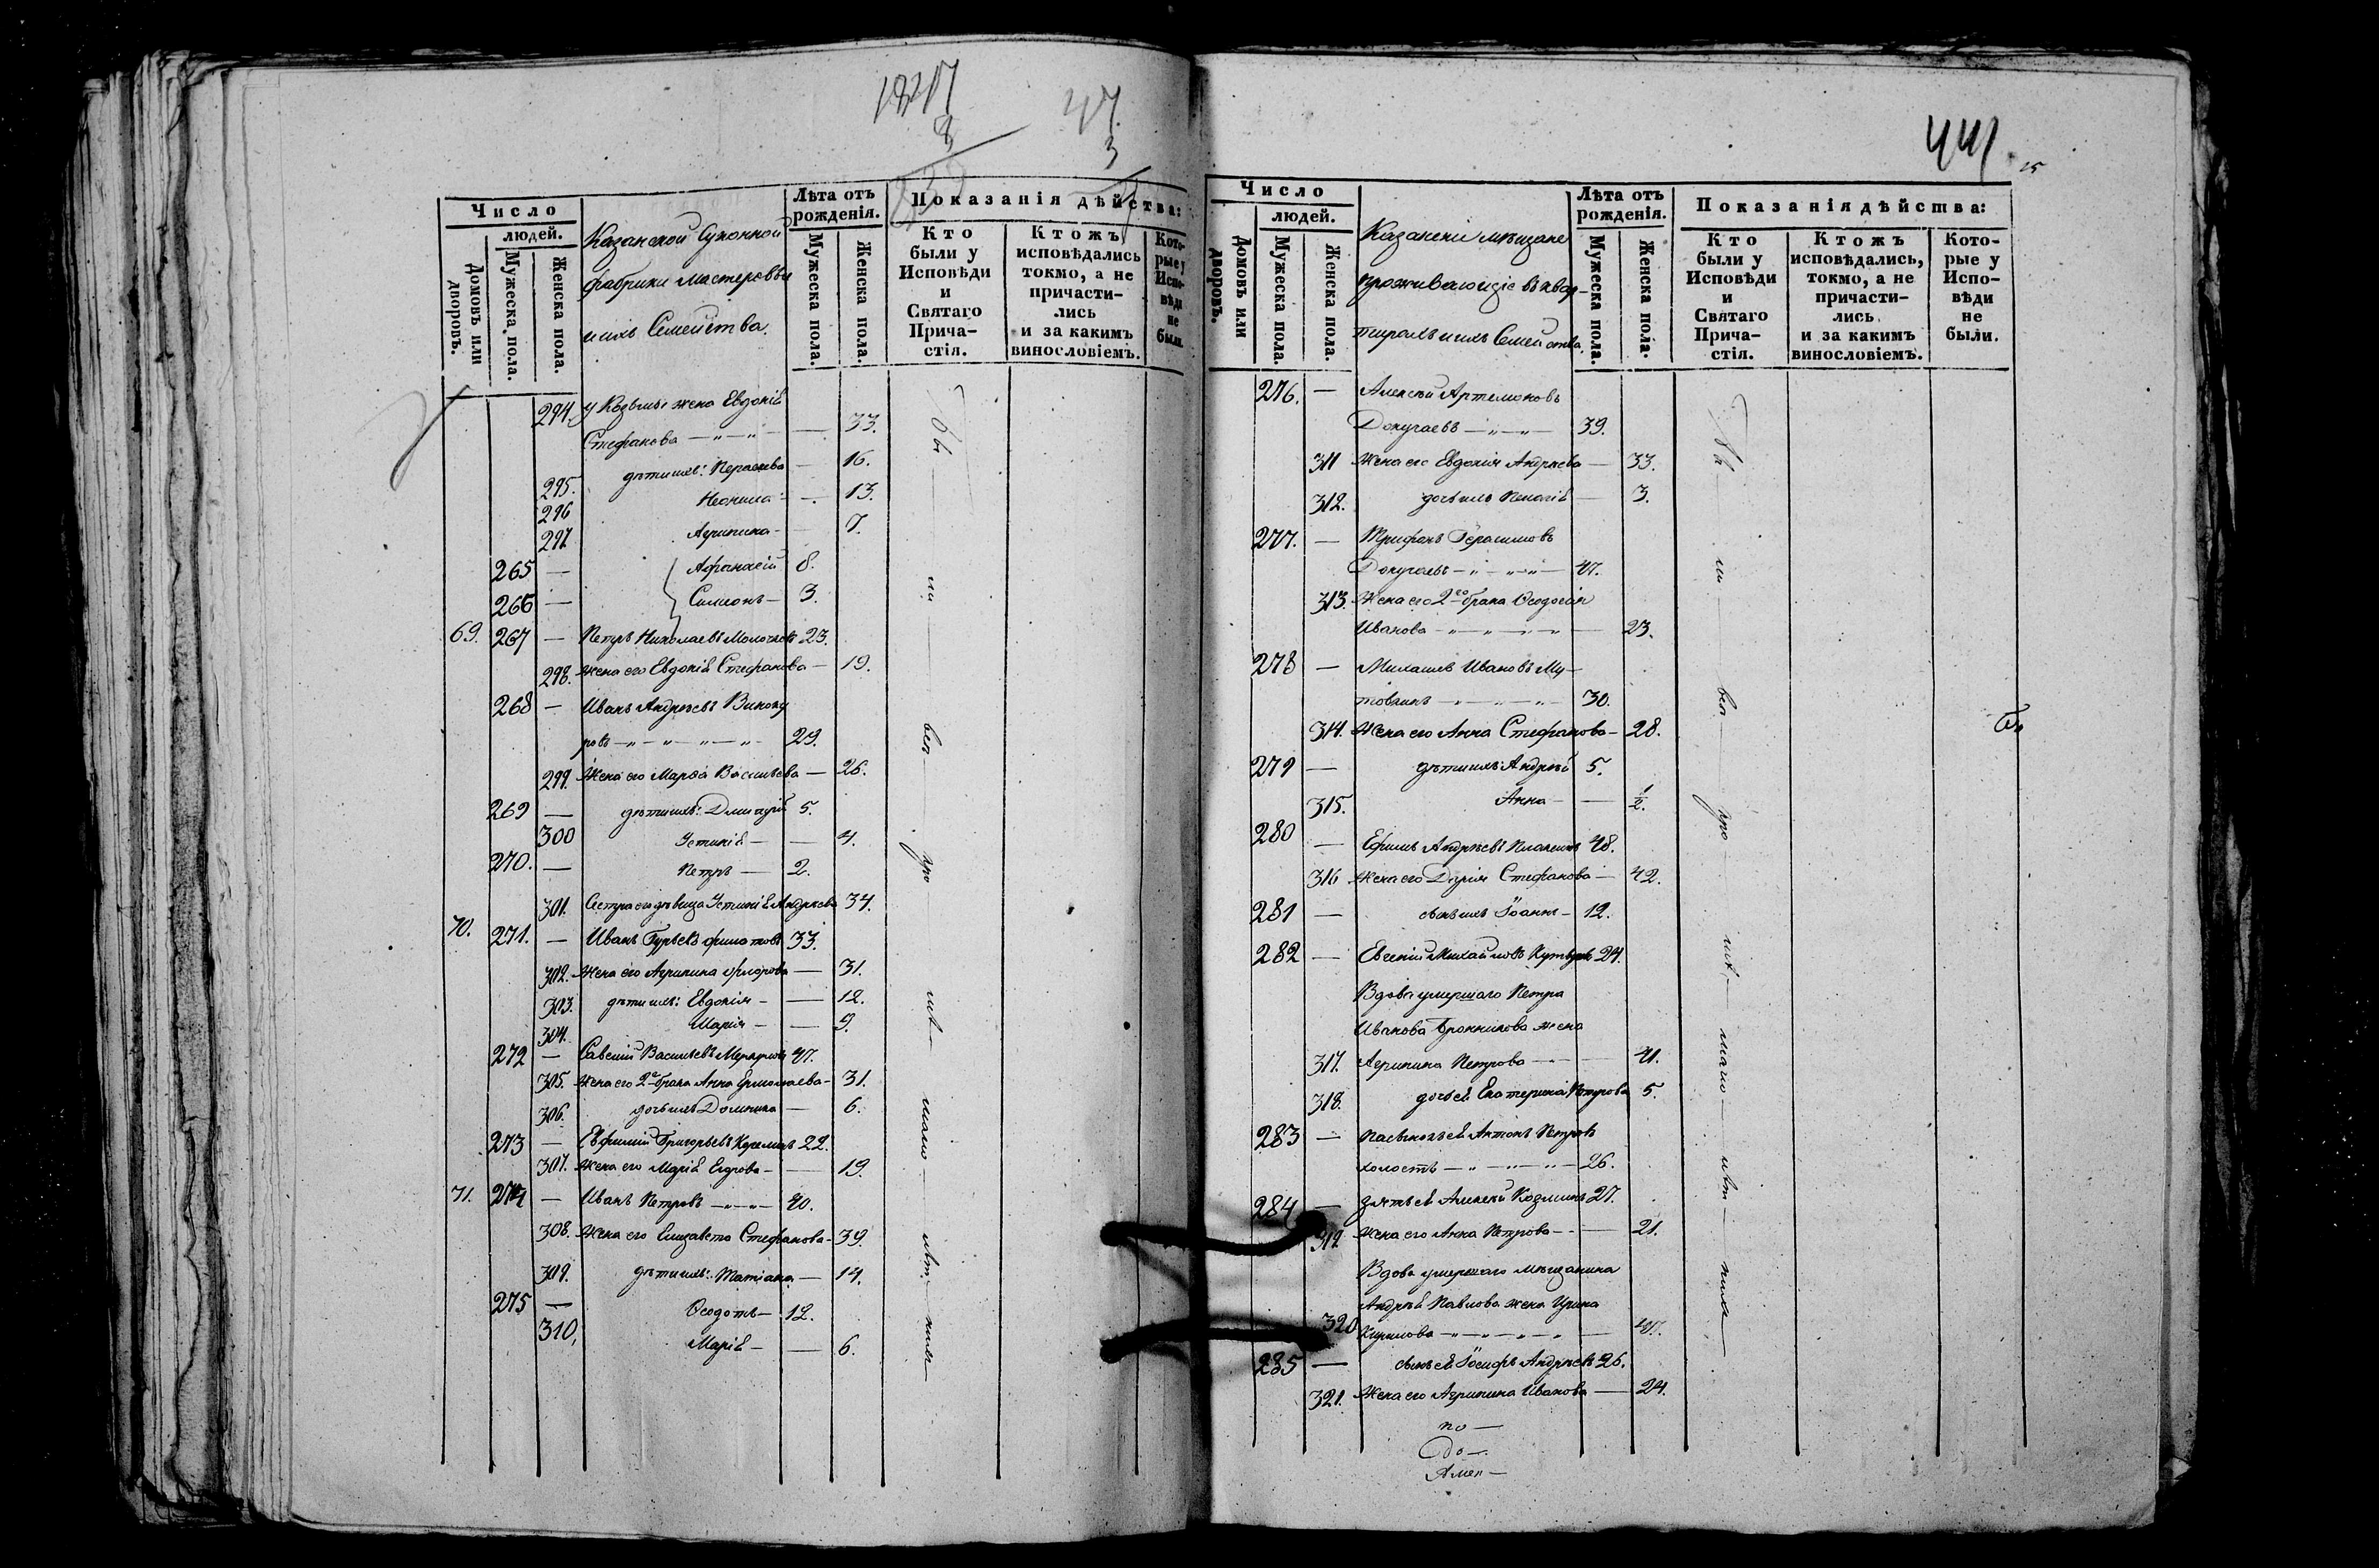 47.
3
441
15
Число
людей.
Домовъ или дворовъ.
Мужеска пола.
Женска пола.
Казанской Суконной
фабрики мастеровые
и ихъ Семейства.
Лѣта отъ рожденія.
Мужеска пола.
Женска пола.
Показанія дѣйства:
Кто были у Исповѣди и Святаго Прича-стія.
Ктожъ исповѣдались токмо, а не причасти-лись и за какимъ винословіемъ.
Кото-рые у Испо-вѣди не были.
294. жена Евдокія
Стефанова — 33.
295. дѣти ихъ: — 16.
296 Неонила — 13.
297 Агрипина — 7.
265 — Афанасій 8.
266 — Симеонъ — 3.
69. 267 — Петръ Николаевъ 23.
298. Жена его Евдокія Стефанова — 19.
268 — Иванъ Андреевъ Виноку
ровъ — 29.
299. Жена его Марѳа Васильева — 26.
269 — дѣти ихъ: Дмитрій 5.
300 Устинія — 4.
270. — Петръ — 2.
301. Сестра его дѣвица Устинія Андреева 34.
70. 271. — Иванъ Гурьевъ Филатовъ 33.
302. Жена его Агрипина Флорова — 31.
303. дѣти ихъ: Евдокія — 12.
304. Марія — 9.
272 — Савелий Васильевъ 47.
305. Жена его 2го брака Анна Ермолаева — 31.
306. дочь ихъ Домника — 6.
273 — Евфимій Григорьевъ 22.
307. Жена его Марія Егорова — 19.
71. 274 — Иванъ Петровъ — 40.
308. Жена его Елизавета Стефанова — 39.
309. дѣти ихъ: Татіана — 14.
275 — Ѳеодотъ — 12.
310. Марія — 6.
Число
людей.
Домовъ или дворовъ.
Мужеска пола.
Женска пола.
Казанскіе мѣщане
проживающіе въ квар-
тирахъ и ихъ Семейства.
Лѣта отъ рожденія.
Мужеска пола.
Женска пола.
Показанія дѣйства:
Кто были у Исповѣди и Святаго Прича-стія.
Ктожъ исповѣдались, токмо, а не причасти-лись и за какимъ винословіемъ.
Кото-рые у Испо-вѣди не были.
276. — Алексѣй Артемоновъ
Докучаевъ — 39.
311 Жена его Евдокія Андреева — 33.
312. дочь ихъ Пелагія — 3.
277. — Трифонъ Герасимовъ
Докучаевъ — 47.
313. Жена его 2го брака Ѳеодосія
Иванова — 23.
278 — Ивановъ Му-
товкинъ — 30.
314. Жена его Анна Стефанова — 28.
279 — дѣти ихъ: Андрей 5.
315. Анна — 1/2.
280 — Ефимъ Андреевъ 48.
316 Жена его Дарія Стефанова — 42.
281 — сынъ ихъ Іоаннъ — 12.
282 — Евгеній Михайловъ 24.
Вдова умершаго Петра
Иванова Бронникова жена
317. Агрипина Петрова — 41.
318. дочь ея Екатерина Петрова 5.
283 — пасынокъ ея Антонъ Петровъ
холостъ — 26.
284 — зять ея Алексѣй Козминъ 27.
319. Жена его Анна Петрова — 21.
Вдова умершаго мѣщанина
Андрея Павлова жена Ирина
320 Кирилова — 47.
285 — сынъ ея Іосифъ Андреевъ 26.
321. Жена его Агрипина Иванова — 24.
по —
До —